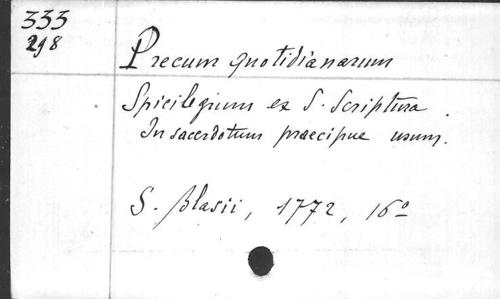 333
298
Precum quotidianarum
Spicilegium ex S. Scriptura
In sacerdotum praecipue usum.
S. Blasii, 1772, 16º